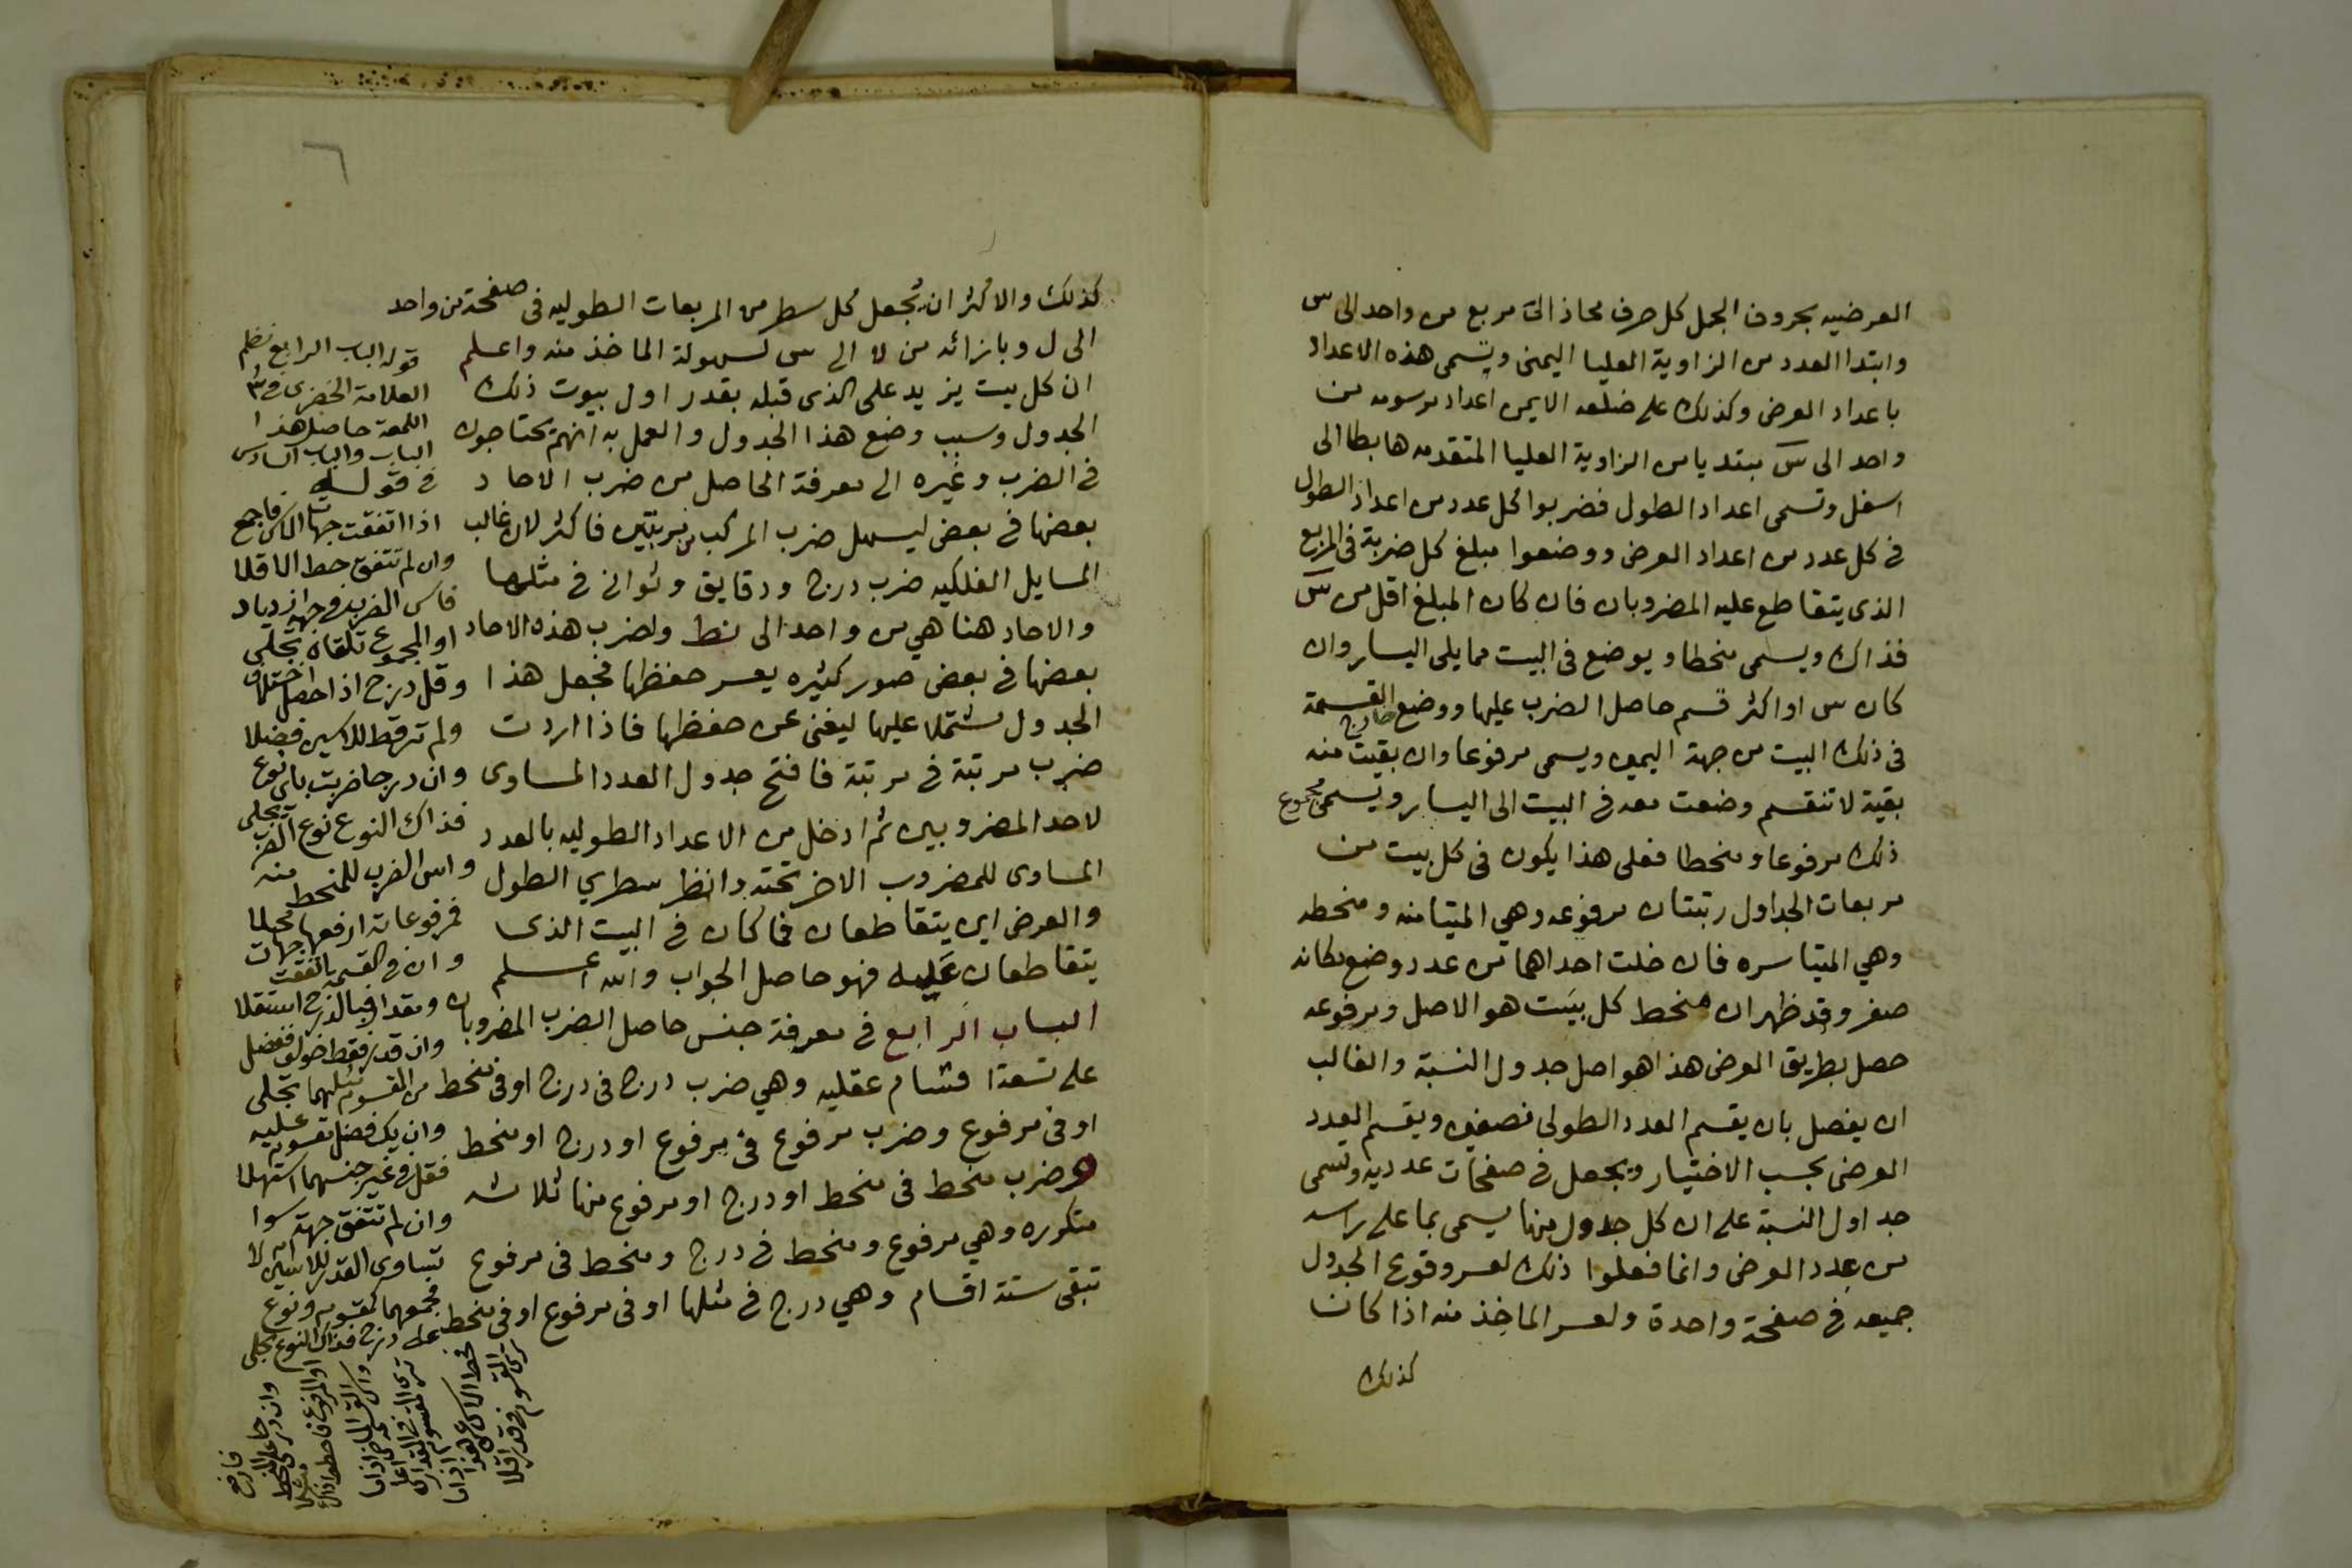 العرضيه بحروف الجمل كل حرف محاذ الى مربع من واحد الى س
وابتدا العدد من الزاوية العليا اليمنى ويسمى هذه الاعداد
باعداد العرض وكذلك على ضلعه الايمن اعداد مرسومه من
واحد الى س مبتديا من الزاوية العليا المتقدمه هابطا الى
اسفل وتسمى اعداد الطول فضربوا كل عدد من اعداد الطول
في كل عدد من اعداد العرض ووضعوا مبلغ كل ضربة في المربع
الذى يتقاطع عليه المضروبان فان كان المبلغ اقل من س
فذاك ويسمى منحطا ويوضع فى البيت مما يلى اليسار وان
كان س او اكثر قسم حاصل الضرب عليها ووضع خارج القسمة
فى ذلك البيت من جهة اليمين ويسمى مرفوعا وان بقيت منه
بقية لا تنقسم وضعت معه فى البيت الى اليسار ويسمى مجموع
ذلك مرفوعا ومنحطا فعلى هذا يكون فى كل بيت من
مربعات الجداول رتبتان مرفوعه وهي المتيامنه ومنحطه
وهي المتياسره فان خلت احداهما من عدد وضع مكانه
صفر وقد ظهر ان منحط كل بيت هو الاصل ومرفوعه
حصل بطريق العرض هذا هو اصل جدول النسبة والغالب
ان يفصل بان يقسم العدد الطولى نصفين ويقسم العدد
العرضى بحسب الاختيار ويجعل فى صفحات عدديه وتسمى
جداول النسبة على ان كل جدول منها يسمى بما على راسه
من عدد العرض وانما فعلوا ذلك لعسر وقوع الجدول
جميعه فى صفحة واحدة ولعسر الماخذ منه اذا كان
كذلك
٦
كذلك والاكثر ان تجعل كل سطر من المربعات الطوليه فى صفحة من واحد
الى ل وبازائه من لا الى س لسهولة الماخذ منه واعلم
ان كل بيت يزيد على الذى قبله بقدر اول بيوت ذلك
الجدول وسبب وضع هذا الجدول والعمل به انهم يحتاجون
فى الضرب وغيره الى معرفة الحاصل من ضرب الاحاد
بعضها فى بعض ليسهل ضرب المركب من مرتبتين فاكثر لان غالب
المسايل الفلكيه ضرب درج ودقايق وثوانى فى مثلها
والاحاد هنا هي من واحد الى نط ولضرب هذه الاحاد
بعضها فى بعض صور كثيره يعسر حفظها فجعل هذا
الجدول مشتملا عليها ليغنى عن حفظها فاذا اردت
ضرب مرتبة فى مرتبة فافتح جدول العدد المساوى
لاحد المضروبين ثم ادخل من الاعداد الطوليه بالعدد
المساوى للمضروب الاخر تحته وانظر سطري الطول
والعرض اين يتقاطعان فما كان فى البيت الذى
يتقاطعان عليه فهو حاصل الجواب والله اعلم
الباب الرابع فى معرفة جنس حاصل الضرب المضروبان
على تسعة اقسام عقليه وهي ضرب درج فى درج او فى منحط
او فى مرفوع وضرب مرفوع فى مرفوع او درج او منحط
وضرب منحط فى منحط او درج او مرفوع منها ثلاثه
متكرره وهي مرفوع ومنحط فى درج ومنحط فى مرفوع
تبقى ستة اقسام وهي درج فى مثلها او فى مرفوع او فى منحط
قوله الباب الرابع نظم
العلامة الخضرى فى
اللمعة حاصل هذا
الباب والباب السادس
فى قوله
اذا اتفقت جهات فاجمع
وان لم تتفق حط الاقلا
او المجموع تلقاه تجلى
وقل درج اذا حصل اختلاف
وان درجا ضربت باى نوع
فذاك النوع نوع الضرب
واس الضرب للمنحط منه
وان فى القسمة اتفقت جهات
من المقسوم
وان يك فضل مقسوم عليه
فقل فى غير جنسهما استهلا
وان لم تتفق جهة سوا
تساوى القدر للاسين ام لا
على درج فذاك النوع تجلى